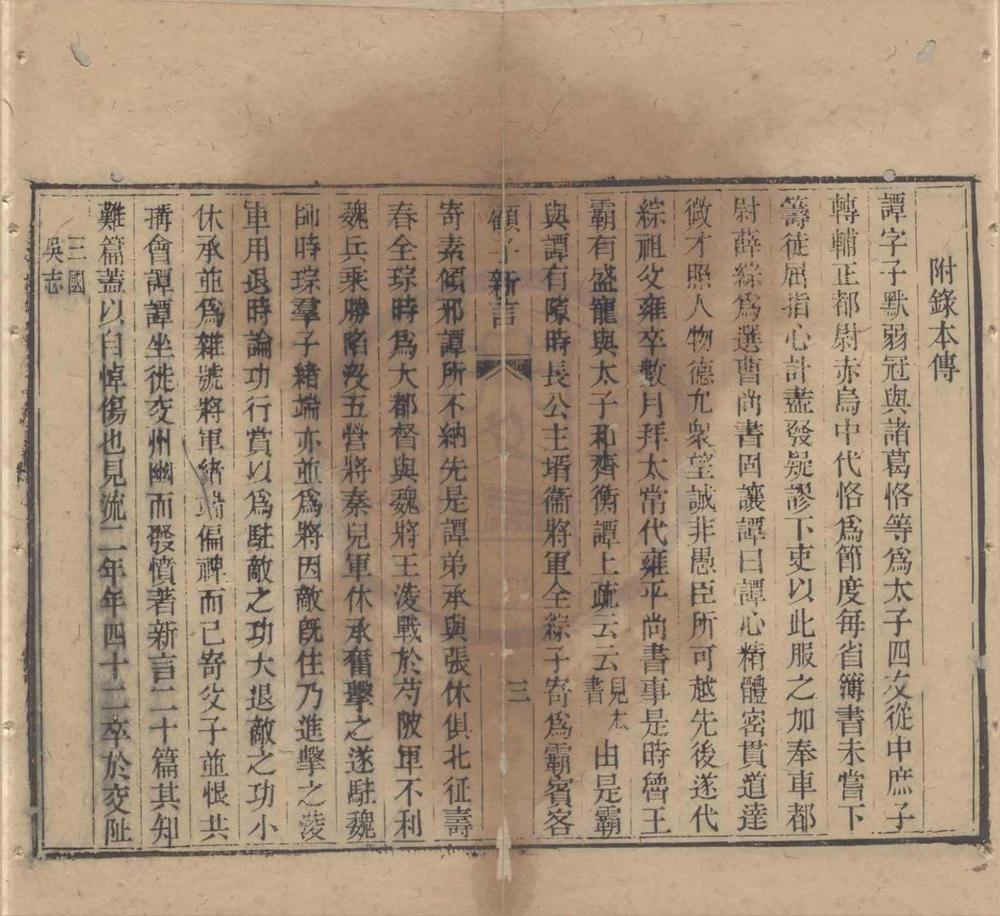 附錄本傳
譚字子默弱冠與諸葛恪等爲太子四友從中庶子
轉輔正都尉赤烏中代恪爲節度每省簿書未嘗下
籌徒屈指心計盡發疑謬下吏以此服之加奉車都
尉薛綜爲選曹尚書固讓譚曰譚心精體密貫道達
微才照人物德允衆望誠非愚臣所可越先後遂代
綜祖父雍卒數月拜太常代雍平尚書事是時魯王
霸有盛寵與太子和齊衡譚上疏云云見本書由是霸
與譚有隙時長公主壻衞將軍全綜子寄爲霸賓客
顧子新言 三
寄素傾邪譚所不納先是譚弟承與張休俱北征壽
春全琮時爲大都督與魏將王淩戰於芍陂軍不利
魏兵乘勝陷沒五營將秦兒軍休承奮擊之遂駐魏
師時琮羣子緒端亦並爲將因敵旣住乃進擊之淩
軍用退時論功行賞以爲駐敵之功大退敵之功小
休承並爲雜號將軍緒端偏裨而已寄父子並恨共
搆會譚譚坐徙交州幽而發憤著新言二十篇其知
難篇蓋以自悼傷也見流二年年四十二卒於交阯
三國吳志